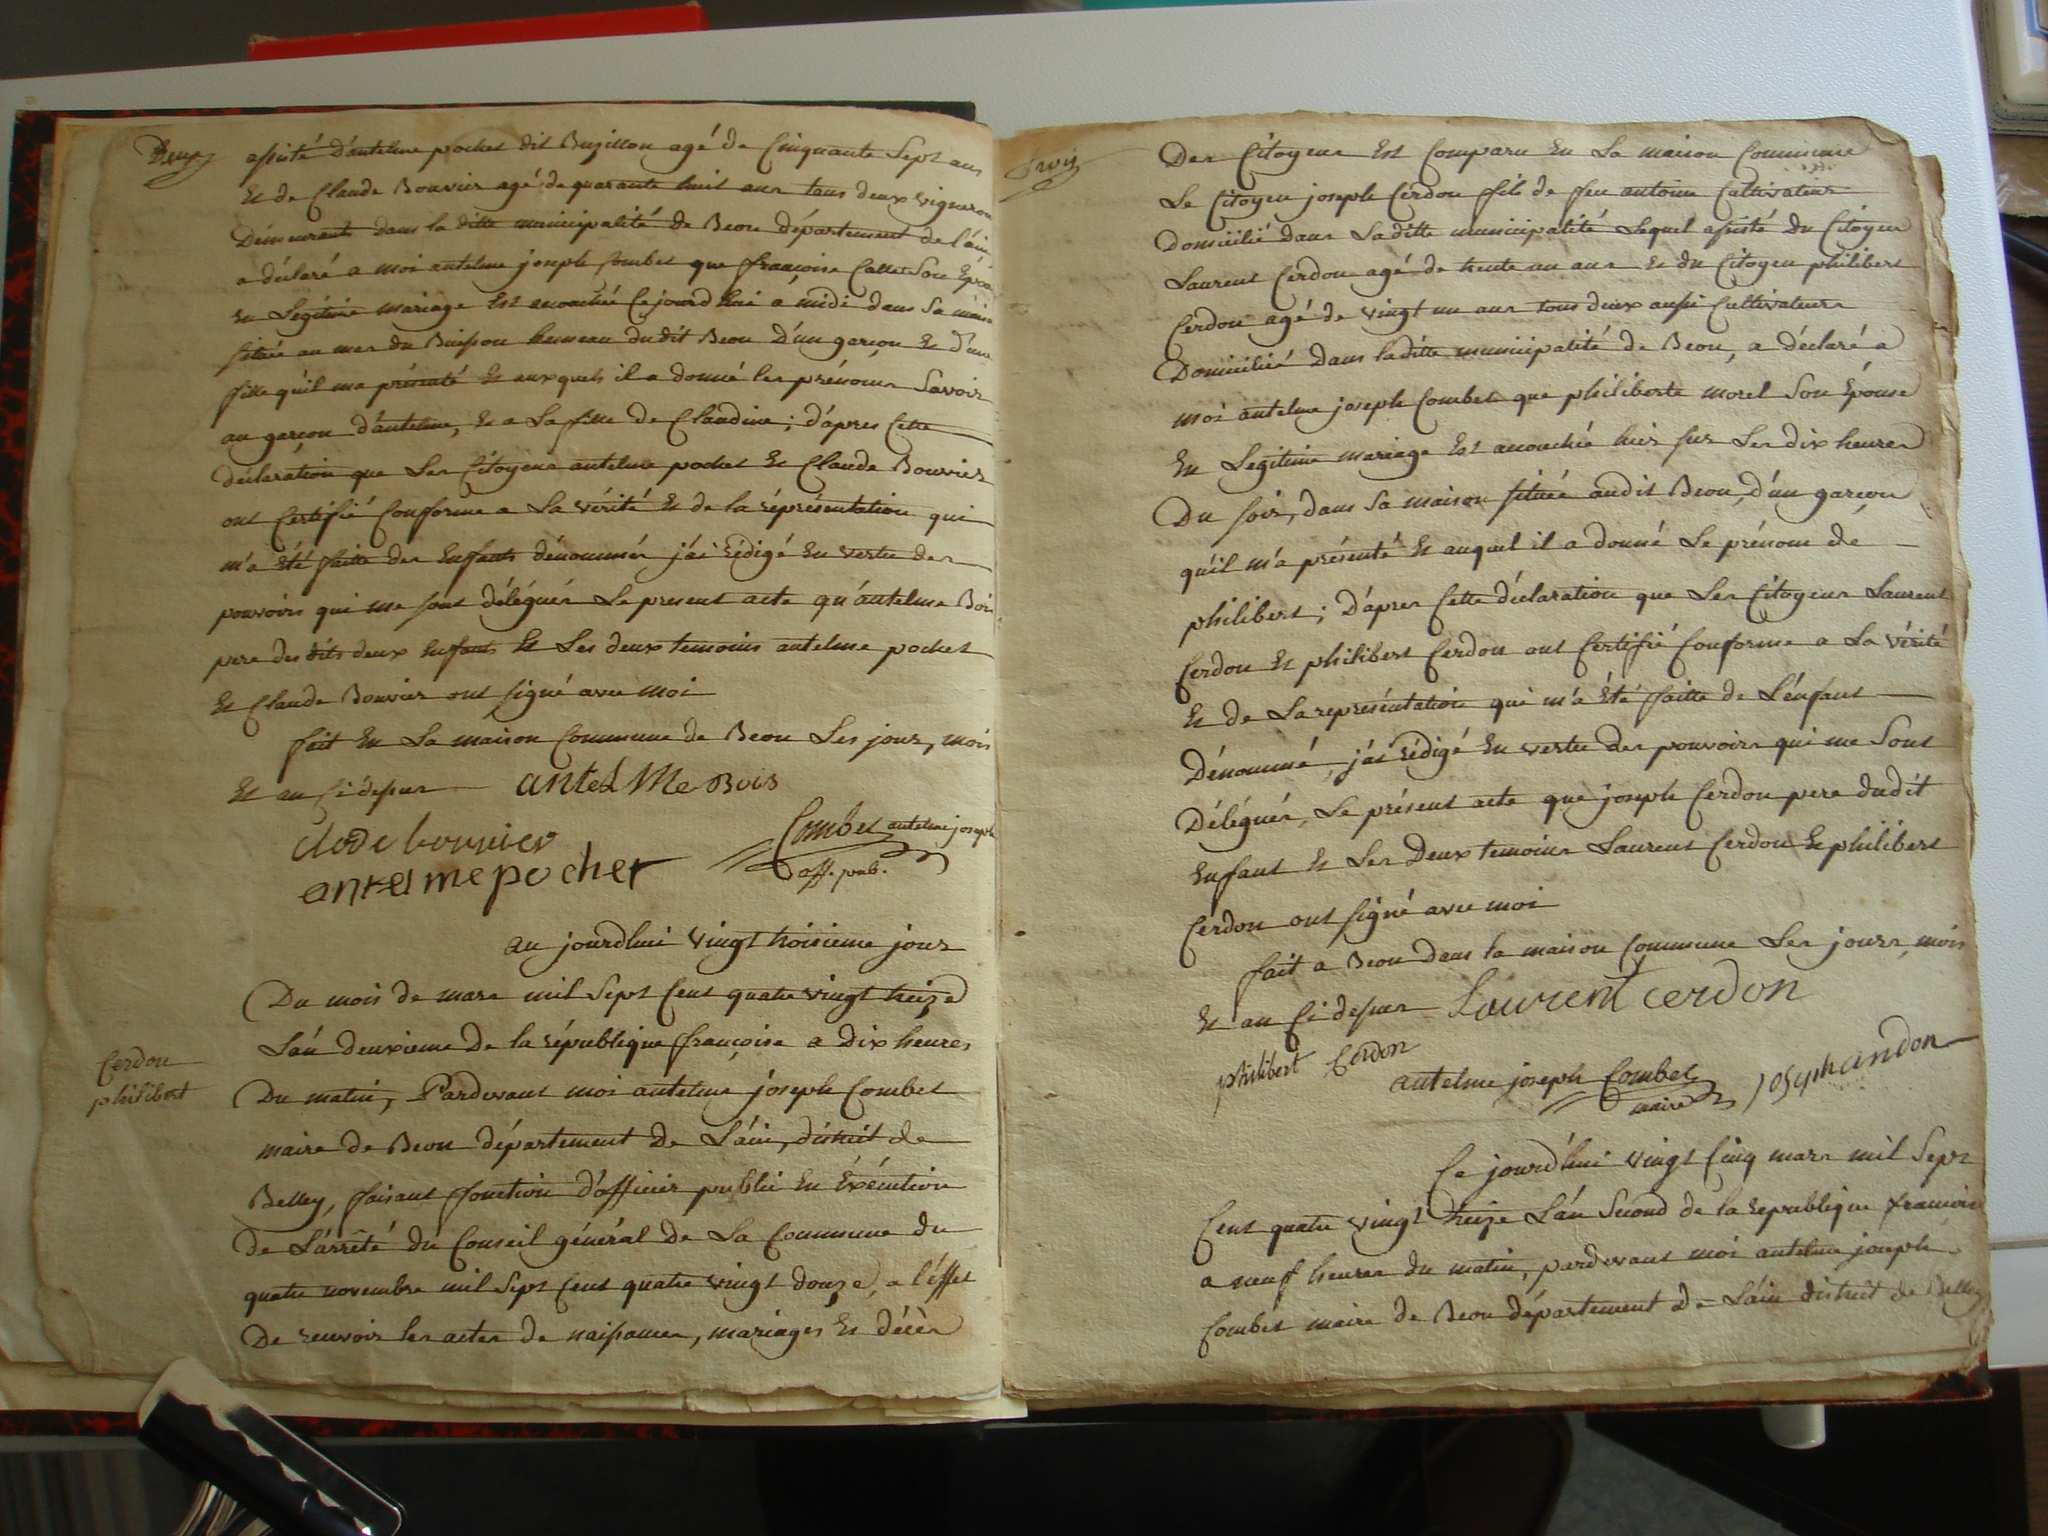 Deux
assisté d'antelme pochet dit Buzillon agé de Cinquante Sept ans
Et de Claude Bouvier agé de quarante huit ans tous deux vigneron
Demeurants dans la ditte municipalité de Beon département de l'áin
a déclaré a moi antelme joseph Combet que françoise Callet Son Epou
En Légitime mariage Est accouchée Cejourdhui a midi dans Sa maison
située au mas du Buisson hameau dudit Beon D'un garçon Et d'une
fille qu'il ma présenté Et auxquels il a donné les prénoms Savoir
au garçon d'antelme, Et a La fille de Claudine; d'apres Cette
déclaration que Les Citoyens antelme pochet Et Claude Bouvier
ont Certifié Conforme a La vérité Et de la réprésentation qui
m'a Eté faitte des Enfants dénommés j'ái rédigé En vertu des
pouvoirs qui me sont délégués Le present acte qu'antelme Bois
pere des dits deux Enfants Et Les deux temoins antelme pochet
Et Claude Bouvier ont signé avec moi
fait En La maison Commune de Beon Les jour, mois
Et an Ci dessus antelMe Bois
clode bouvier
Combet antelme joseph
antelme pochet
off. pub.
au jourdhui vingt troisieme jour
Du mois de mars mil Sept Cent quatre vingt treize
L'án deuxieme de la république françoise a dix heures
Cerdon
philibert
Du matin, Pardevant moi antelme joseph Combet
maire de Beon département de L'áin, district de
Belley, faisant fonction d'officier public En Exécution
de L'arrêté du Conseil général de La Commune du
quatre novembre mil Sept Cent quatre vingt douze, a l'éffet
De recevoir les actes de naissances, mariages Et décès
Trois
Des Citoyens Est Comparu En La maison Commune
Le Citoyen joseph Cerdon fils de feu antoine Cultivateur
Domicilié dans Laditte municipalité Lequel assisté du Citoyen
Laurent Cerdon agé de trente un ans Et du Citoyen philibert
Cerdon agé de vingt un ans tous deux aussi Cultivateurs
Domiciliés dans laditte municipalité de Beon, a déclaré a
moi antelme joseph Combet que philiberte morel Son Epouse
En Legitime mariage Est accouchée hier sur Les dix heures
Du soir, dans Sa maison située audit Beon, d'un garçon
qu'il m'a présenté Et auquel il a donné Le prénom de
philibert; D'apres Cette déclaration que Les Citoyens Laurent
Cerdon Et philibert Cerdon ont Certifié Conforme a La vérité
Et de La représentation qui m'a Eté faitte de L'énfant
Dénommé, j'ái rédigé En vertu des pouvoirs qui me Sont
Délégués, Le présent acte que joseph Cerdon pere dudit
Enfant Et Les Deux temoins Laurent Cerdon Et philibert
Cerdon ont signé avec moi
fait a Beon dans la maison Commune Les jour, mois
Et an Ci dessus Laurent cerdon
philibert Cerdon
antelme joseph Combet
maire
Ce jourd'hui vingt Cinq mars mil Sept
Cent quatre vingt treize L'án Second de la republique francoise
a neuf heures du matin, pardevant moi antelme joseph
Combet maire de Beon département de L'áin district de Belley